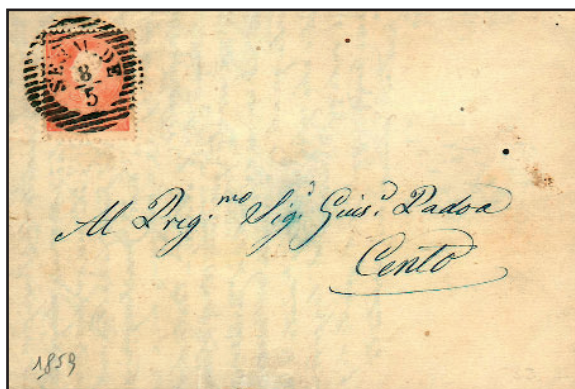 SERMIDE
8/5
Al Preg.mo Sig.r Gius.e Padoa
Cento
1859